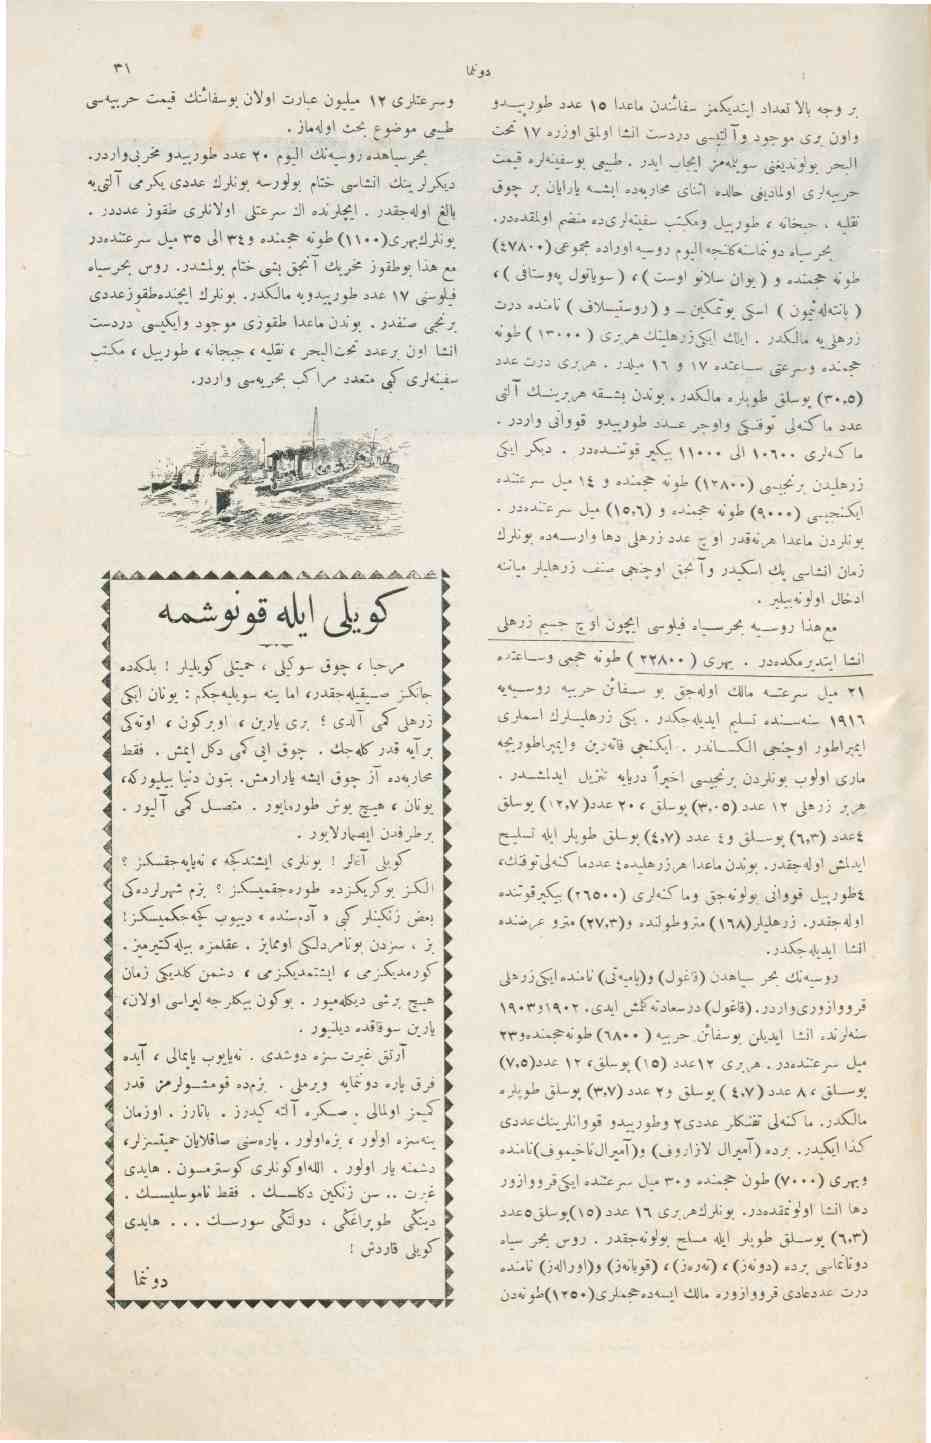 دوننما
٣١
بر وجه بالا تعداد ايتديكمز سفائندن ماعدا ١٥ عدد طورپيدو
واون برى موجود وآلتيسى دردست انشا اولمق اوزره ١٧ تحت
البحر بولونديغنى سويلمه‌مز ايجاب ايدر . طبيعى بوسفينه‌لره قيمت
حربيه‌لرى اولماديغى حالده اثناى محاربه‌ده ايشه يارايان بر چوق
نقليه ، جبخانه ، طورپيل ومكتب سفينه‌لرى‌ده منضم اولمقده‌در.
بحر سياه دوننماسنه كلنجه اليوم روسيه اوراده مجموعى (٤٧٨٠٠)
طونه حجمنده و ( يوان سلاتو اوست ) ، ( سوياتول يه‌وستافى ) ،
( پانته‌له‌ئيمون ) اسكى پوتمكين ـ و ( روستيسلاف ) نامنده درت
زرهلى‌يه مالكدر . ايلك ايكى زرهلينك هر برى ( ١٣٠٠٠ ) طونه
حجمنده وسرعتى ساعتده ١٧ و ١٦ ميلدر . هر برى درت عدد
(٣٠,٥) پوسلق طوپلره مالكدر . بوندن بشقه هر برينك آلتى
عدد ماكنه‌لى توفنكى واوچر عدد طورپيدو قووانى واردر .
ماكنه‌لرى ١٠٦٠٠ الى ١١٠٠٠ بيكير قوتنده‌در . ديكر ايكى
زرهليدن برنجيسى (١٢٨٠٠) طونه حجمنده و ١٤ ميل سرعتنده
ايكنجيسى (٩٠٠٠) طونه حجمنده و (١٥,٦) ميل سرعتنده‌در .
بونلردن ماعدا هرنه‌قدر اوچ عدد زرهلى دها وارسه‌ده بونلرك
زمان انشاسى پك اسكيدر وآنجق اوچنجى صنف زرهليلر ميانه
ادخال اولونه‌بيلير .
مع‌هذا روسيه بحر سياه فيلوسى ايچون اوچ جسيم زرهلى
انشا ايتديرمكده‌در . بهرى ( ٢٢٨٠٠ ) طونه حجمى وساعتده
٢١ ميل سرعته مالك اوله‌جق بو سفائن حربيه روسيه‌يه
١٩١٦ سنه‌سنده تسليم ايديله‌جكدر . يكى زرهليلرك اسملرى
ايمپراطور اوچنجى الكساندر . ايكنجى قاته‌رين وايمپراطوريچه
مارى اولوب بونلردن برنجيسى اخيراً دريايه تنزيل ايدلمشدر .
هر بر زرهلى ١٢ عدد (٣,٠٥) پوسلق ، ٢٠ عدد (١٢,٧) پوسلق
٤ عدد (٦,٣) پوسلق و٤ عدد (٤,٧) پوسلق طوپلر ايله تسليح
ايدلمش اوله‌جقدر. بوندن ماعدا هر زرهليده ٤ عدد ماكنه‌لى توفنك،
٤ طورپيل قووانى بولونه‌جق وماكنه‌لرى (٢٦٥٠٠) بيكير قوتنده
اوله‌جقدر. زرهليلر (١٦٨) مترو طولنده و(٢٧,٣) مترو عرضنده
انشا ايديله‌جكدر.
روسيه‌نك بحر سياهدن (قاغول) و(پاميه‌تى) نامنده ايكى زرهلى
قرووازورى واردر. (قاغول) درسعادته كلمش ايدى. ١٩٠٢و١٩٠٣
سنه‌لرنده انشا ايديلن بوسفائن حربيه ( ٦٨٠٠ ) طونه حجمنده و٢٣
ميل سرعتنده‌در . هر برى ١٢ عدد (١٥) پوسلق، ١٢ عدد (٧,٥)
پوسلق ، ٨ عدد (٤,٧ ) پوسلق و٢ عدد (٣,٧) پوسلق طوپلره
مالكدر. ماكنه‌لى تفنكلر عددى ٢ وطورپيدو قووانلرينك عددى
كذا ايكيدر. برده (آميرال لازاروف) و(آميرال ناخيموف) نامنده
وبهرى (٧٠٠٠) طون حجمنده و٣٠ ميل سرعتنده ايكى قرووازور
دها انشا اولونمقده‌در. بونلرك هر برى ١٦ عدد (١٥) پوسلق ٥ عدد
(٦,٣) پوسلق طوپلر ايله مسلح بولونه‌جقدر . روس بحر سياه
دوننماسى برده (دونه‌ز) ، (ته‌ره‌ز) ، (قوبانه‌ز) و(اوراله‌ز) نامنده
درت عدد عادى قرووازوره مالك ايسه‌ده حجملرى(١٢٥٠)طونه‌دن
وسرعتلرى ١٢ ميليون عبارت اولان بوسفائنك قيمت حربيه‌سى
طبيعى موضوع بحث اوله‌ماز .
بحر سياهده روسيه‌نك اليوم ٢٠ عدد طورپيدو مخربى واردر.
ديكرلرينك انشاسى ختام بولورسه بونلرك عددى يكرمى آلتى‌يه
بالغ اوله‌جقدر . ايچلرنده اك سرعتلى اولانلرى طقوز عدددر .
بونلرك بهرى(١١٠٠) طونه حجمنده و٣٤ الى ٣٥ ميل سرعتنده‌در
مع هذا بوطقوز مخربك آنجق بشى ختام بولمشدر. روس بحر سياه
فيلوسى ١٧ عدد طورپيدويه مالكدر. بونلرك ايچنده طقوز عددى
برنجى صنفدر. بوندن ماعدا طقوزى موجود وايكيسى دردست
انشا اون بر عدد تحت البحر ، نقليه ، جبخانه ، طورپيل ، مكتب
سفينه‌لرى كبى متعدد مراكب بحريه‌سى واردر.
كويلى ايله قونوشمه
مرحبا ، چوق سوكيلى ، حميتلى كويليلر ! بلكه‌ده
جانكز صيقيله‌جقدر، اما ينه سويليه‌جكم : يونان ايكى
زرهلى كمى آلدى ؛ برى يارين ، اوبركون ، اوته‌كى
بر آيه قدر كله‌جك . چوق ايى كمى دكل ايمش . فقط
محاربه‌ده آز چوق ايشه يارارمش. بتون دنيا بيليوركه،
يونان ، هيچ بوش طورمايور . متصل كمى آليور .
بر طرفدن ايصمارلايور .
كويلى آغالر ! بونلرى ايشتدكجه ، نه‌ياپه‌جقسكز ؟
الكز بوكريكزده طوره‌جقميسكز ؟ بزم شهرلرده‌كى
بعض زنكينلر كبى « آدم‌سنده » ديوب كچه‌جكميسكز!
بز ، سزدن بونامردلكى اوممايز . عقلمزه بيله كتيرميز .
كورمديكزمى ، ايشتمديكزمى ، دشمن كلديكى زمان
هيچ برشى ديكله‌ميور . بوكون بيكلرجه ليراسى اولان،
يارين سوقاقده ديلنيور .
آرتق غيرت سزه دوشدى . نه‌ياپوب ياپمالى ، آيده
قرق پاره دوننمايه ويرملى . بزم‌ده قومشولرمز قدر
كميمز اولمالى . صكره آلته كيدرز . باتارز . اوزمان
ينه‌سزه اولور ، بزه‌اولور . پاره‌سنى صاقلايان حميتسزلر،
دشمنه يار اولور . الله اوكونلرى كوسترمسون . هايدى
غيرت .. سن زنكين دكلسك . فقط ناموسليسك .
دينكى طوپراغكى ، دولتكى سورسك ... هايدى
كويلى قارداش !
دوننما